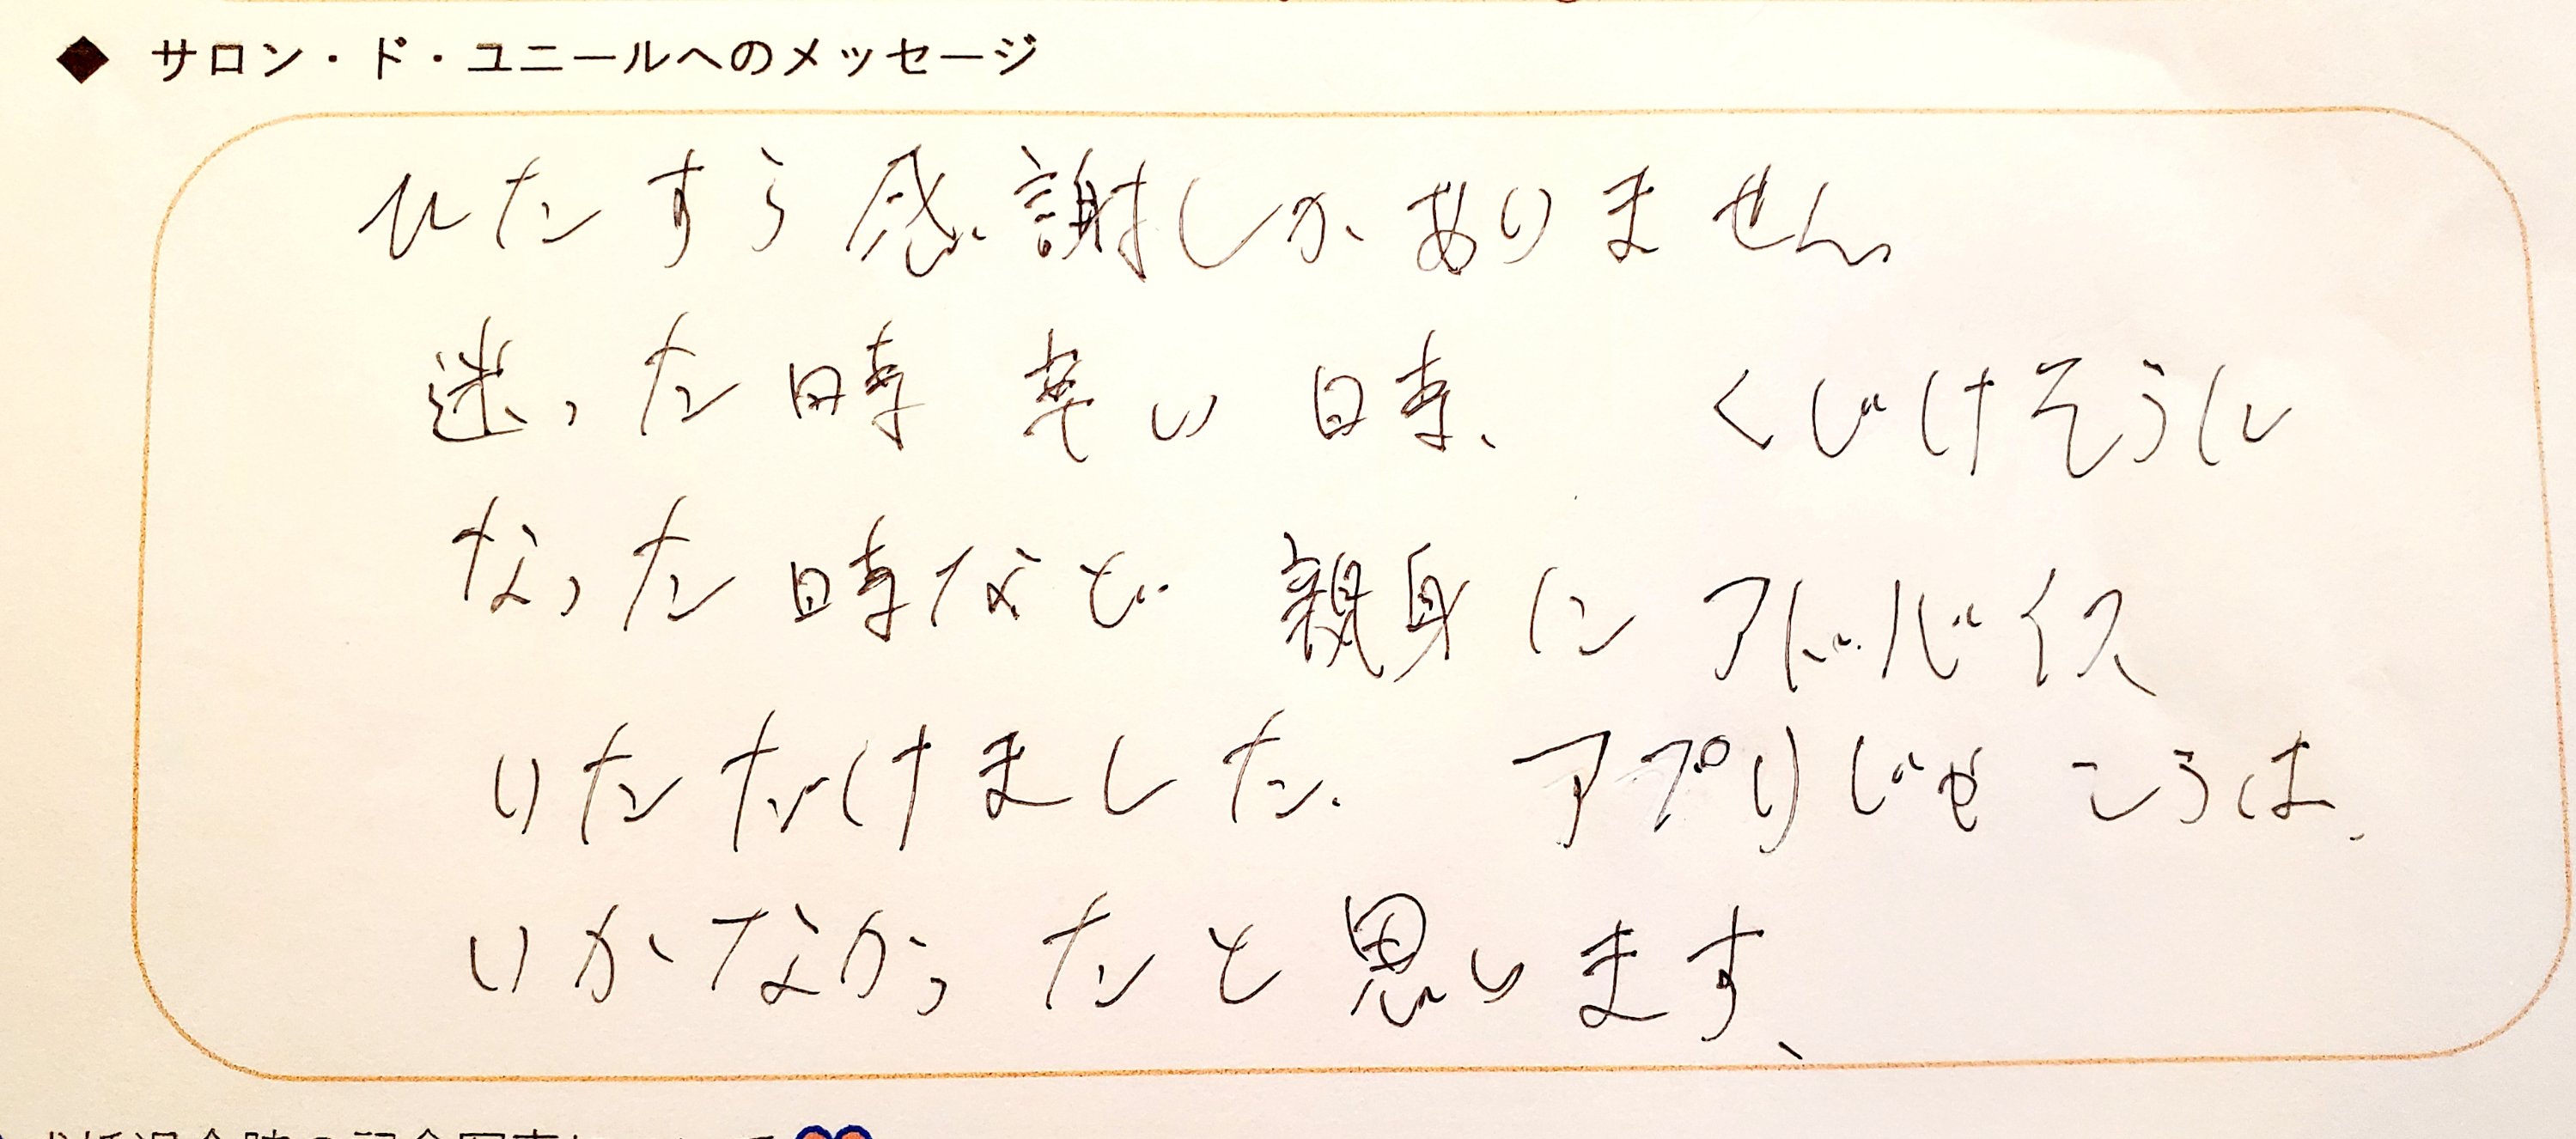 ◆ サロン・ド・ユニールへのメッセージ
ひたすら感謝しかありません。
迷った時 辛い時、 くじけそうに
なった時など 親身に アドバイス
いただけました。 アプリじゃ こうは、
いかなかったと思います、